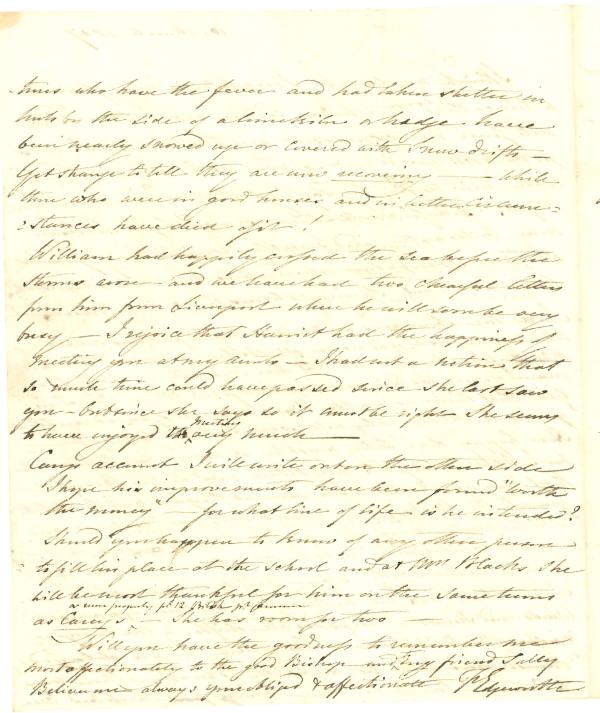 -tures who have the fever and had taken shelter in
huts by the side of a limekiln or hedge have
been nearly snowed up or covered with Snow drifts -
Yet strange to tell they are now recovering - while
those who were in good houses and in better Circum=
=stances have died of it!
William had happily crossed the sea before the
storms arose - and we have had two chearful letters
from him from Liverpool where he will soon be very
busy - I rejoice that Harriet had the happiness of
meeting you at my aunts - I had not a notion that
so much time could have passed since she last saw
you - but since she says so it must be right She seems
to have enjoyed the meeting very much
account I will write out on the other side
I hope his improvements have been found "worth
the money" - for what line of life is he intended?
Should you happen to know of any other person
to fill his place at the school and at Mrs Blacks She
will be most thankful for him on the same terms
or more properly British
as - She has room for two -
Will you have the goodness to remember me
most affectionately to the good Bishop and my friend Sally
Believe me always your obliged & affectionate Edgeworth